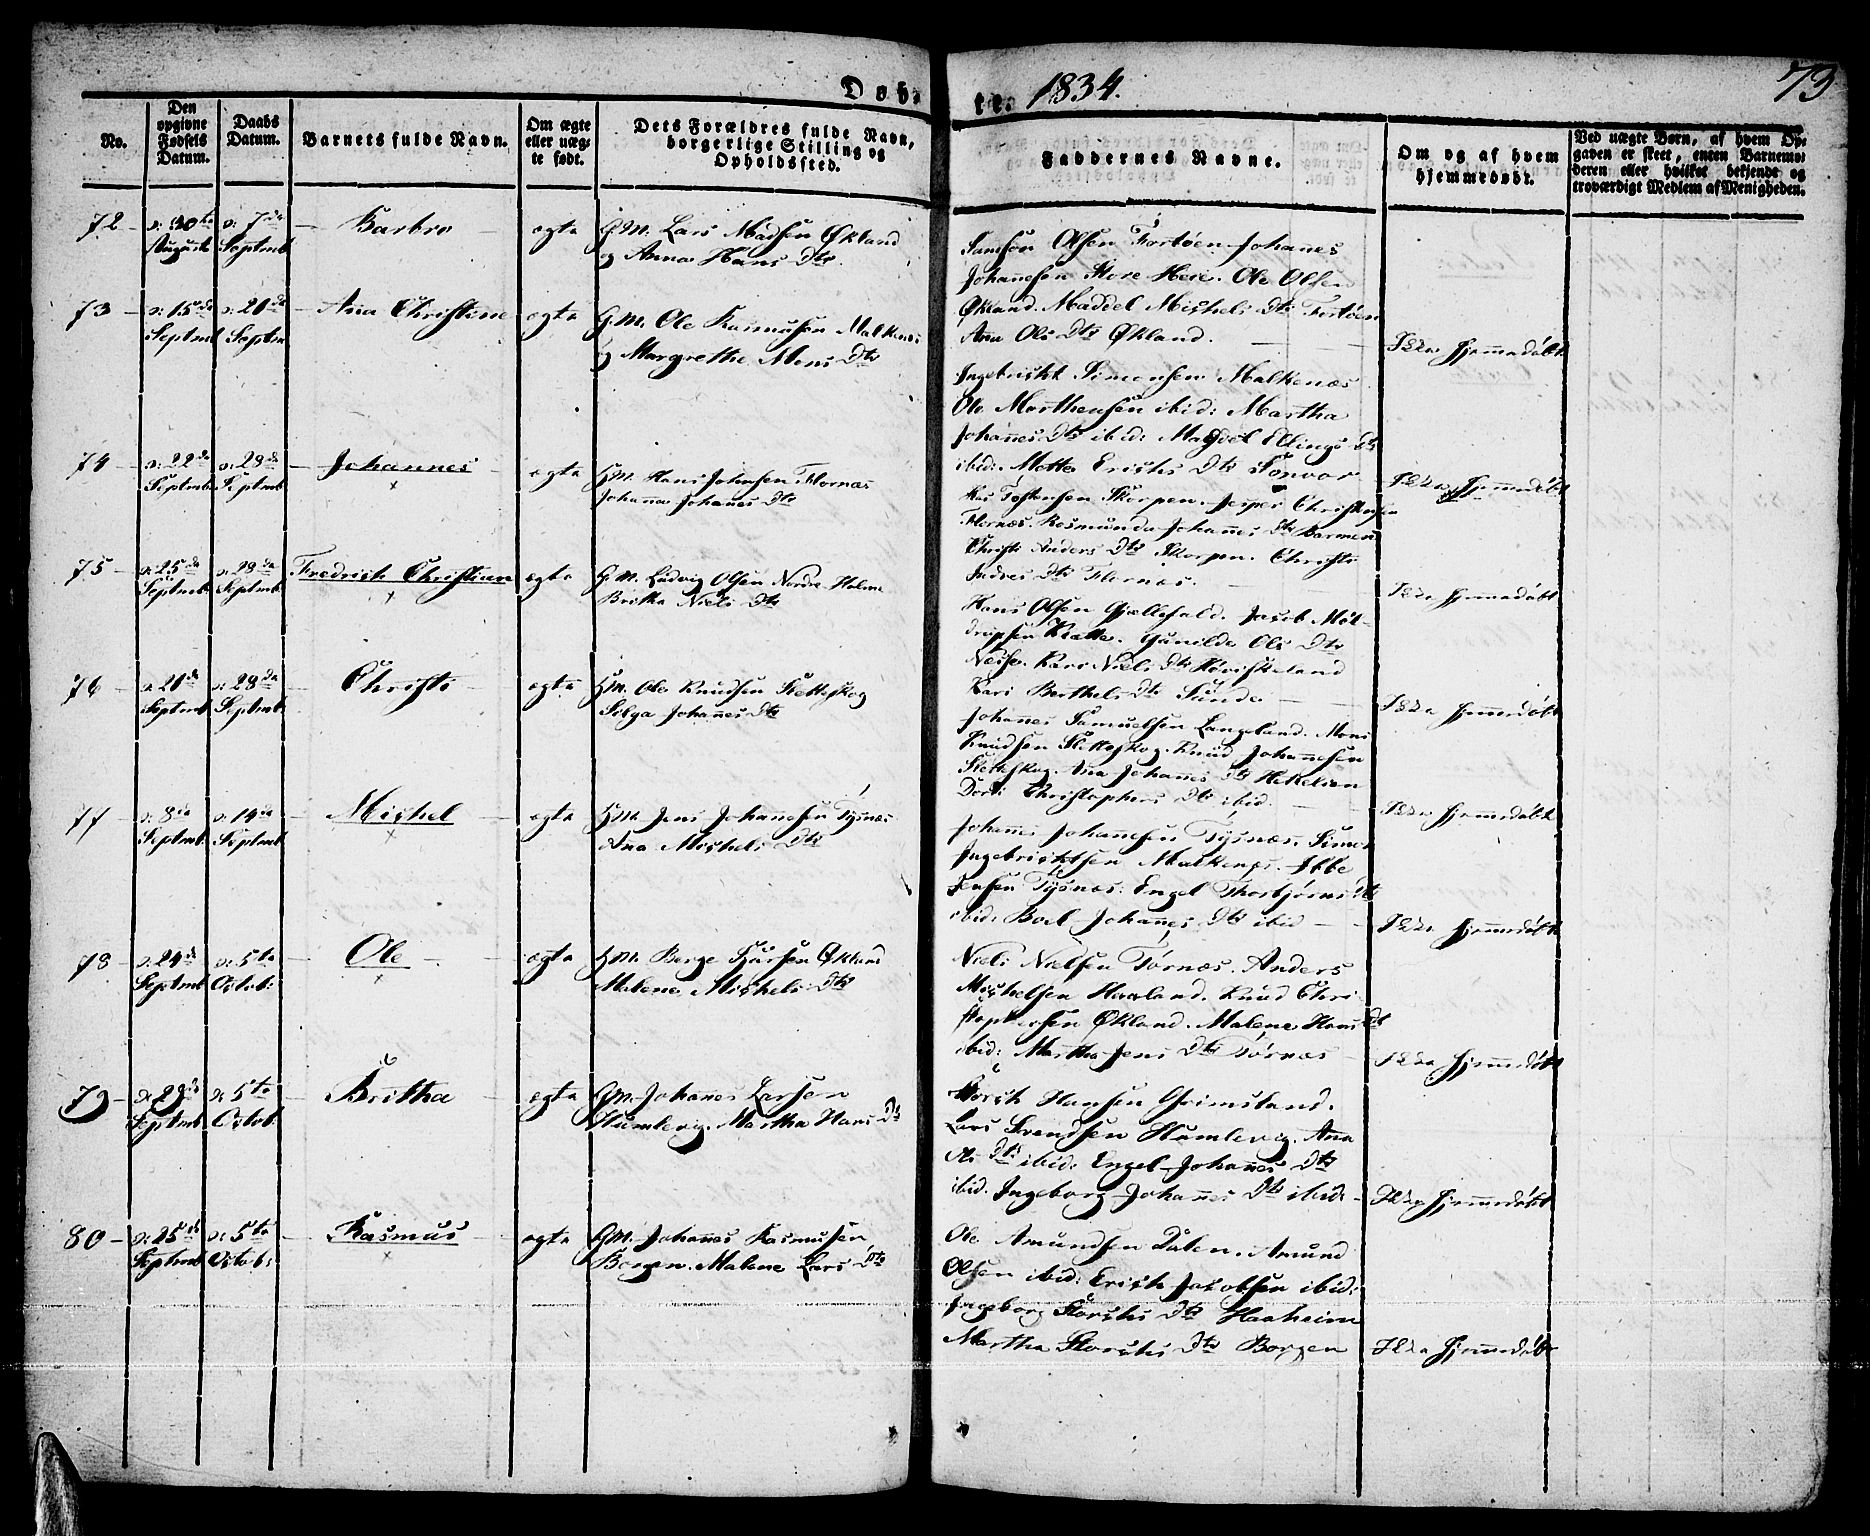 Døb-
te. 1834.
73
No.
Den opgivne Fødsels Datum.
Daabs Datum.
Barnets fulde Navn.
Om ægte eller uægte født.
Dets Forældres fulde Navn, borgerlige Stilling og Opholdssted.
Faddernes Navne.
Om og af hvem hjemmedøbt.
Ved uægte Børn, af hvem Opgaven er skeet, enten Barnemoderen eller hvilket bekjendt og troværdigt Medlem af Menigheden.
72 d: 30te August d: 7da Septmb Barbro ægta G.M. Lars Madsen Økland
og Anna Hans Dtr.
Samson Olsen Fortøen Johanes
Johannesen Store Herø. Ole Olsen
Økland. Maddel Michels Dtr Fortøen
Anna Ols Dtr Økland. Ikke hjemmedøbt
73 d: 15da Septmb d: 21da Septmb Ana Christine ægta G.M. Ole Rasmussen Malkenæs
og Margrethe Mons Dtr
Ingebrickt Simensen Malkenæs
Ole Morthensen ibid: Martha
Johannes Dtr ibid: Magdel Ellings Dtr
ibid: Mette Erichs Dtr Ikke hjemmedøbt
74 d: 22da Septmb d: 28da Septmb Johannes ægta G.M. Hans Johnsen Flornæs
Johanna Johanes Dtr
Tostensen Skorpen. Jesper Christensen
Flornæs. Rosmunda Johannes Dtr Barmen
Christi Anders Dtr Skorpen. Christi
Andres Dtr Flornæs. Ikke hjemmedøbt
75 d: 25da Septmb d: 28da Septmb Fredrich Christian ægta G.M. Ludvig Olsen Nordre Holme
Britha Niels Dtr
Hans Olsen Gjællefald. Jacob
Gunilde Ols Dtr
Næsse. Kari Niels Dtr
Kari Berthels Dtr Sunde Ikke hjemmedøbt
76 d: 21da Septmb d: 28da Septmb Christi ægta G.M. Ole Knudsen Sletteskog
Sølga Johanes Dtr
Johannes Samuelsen Langeland. Mons
Knudsen Sletteskog. Knud Johannesen
Sletteskog. Ana Johanes Dtr
Dorti Christophers Dtr ibid. Ikke hjemmedøbt
77 d: 8da Septmb d: 14da Septmb Michel ægta G.M. Jens Johannesen Tysnæs
Ana Michels Dtr
Johannes Johannesen Tysnæs. Simen
Ingebricktsen Malkenæs. Ebbe
Jensen Tysnæs. Engel Thorbjørns Dtr
ibid: Boel Johannes Dtr ibid Ikke hjemmedøbt
78 d: 24da Septmb d: 5ta Octob: Ole ægta G.M. Berge Økland
Malene Michels Dtr
Niels Nielsen Tørnæs. Anders
Michelsen Haaland. Knud Chri-
stophersen Økland. Malene Hans Dtr
ibid: Martha Jens Dtr Tørnæs Ikke hjemmedøbt
79 d: 29da Septmb d: 5ta Octob. Britha ægta G.M. Johanes Larsen
Humlevig. Martha Hans Dtr
Hansen Grimsland.
Lars Svendsen Humlevig. Ana
Ols Dtr ibid: Engel Johanes Dtr
ibid. Ingeborg Johannes Dtr ibid: Ikke hjemmedøbt
80 d: 25da Septmb d: 5ta Octob: Rasmus ægta G.M. Johannes Rasmusen
Borgen. Malene Lars Dtr
Ole Amundsen Dalen. Amund
Olsen ibid: Erich Jacobsen ibid:
Ingeborg Størchs Dtr Haaheim
Martha Størchs Dtr Borgen Ikke hjemmedøbt